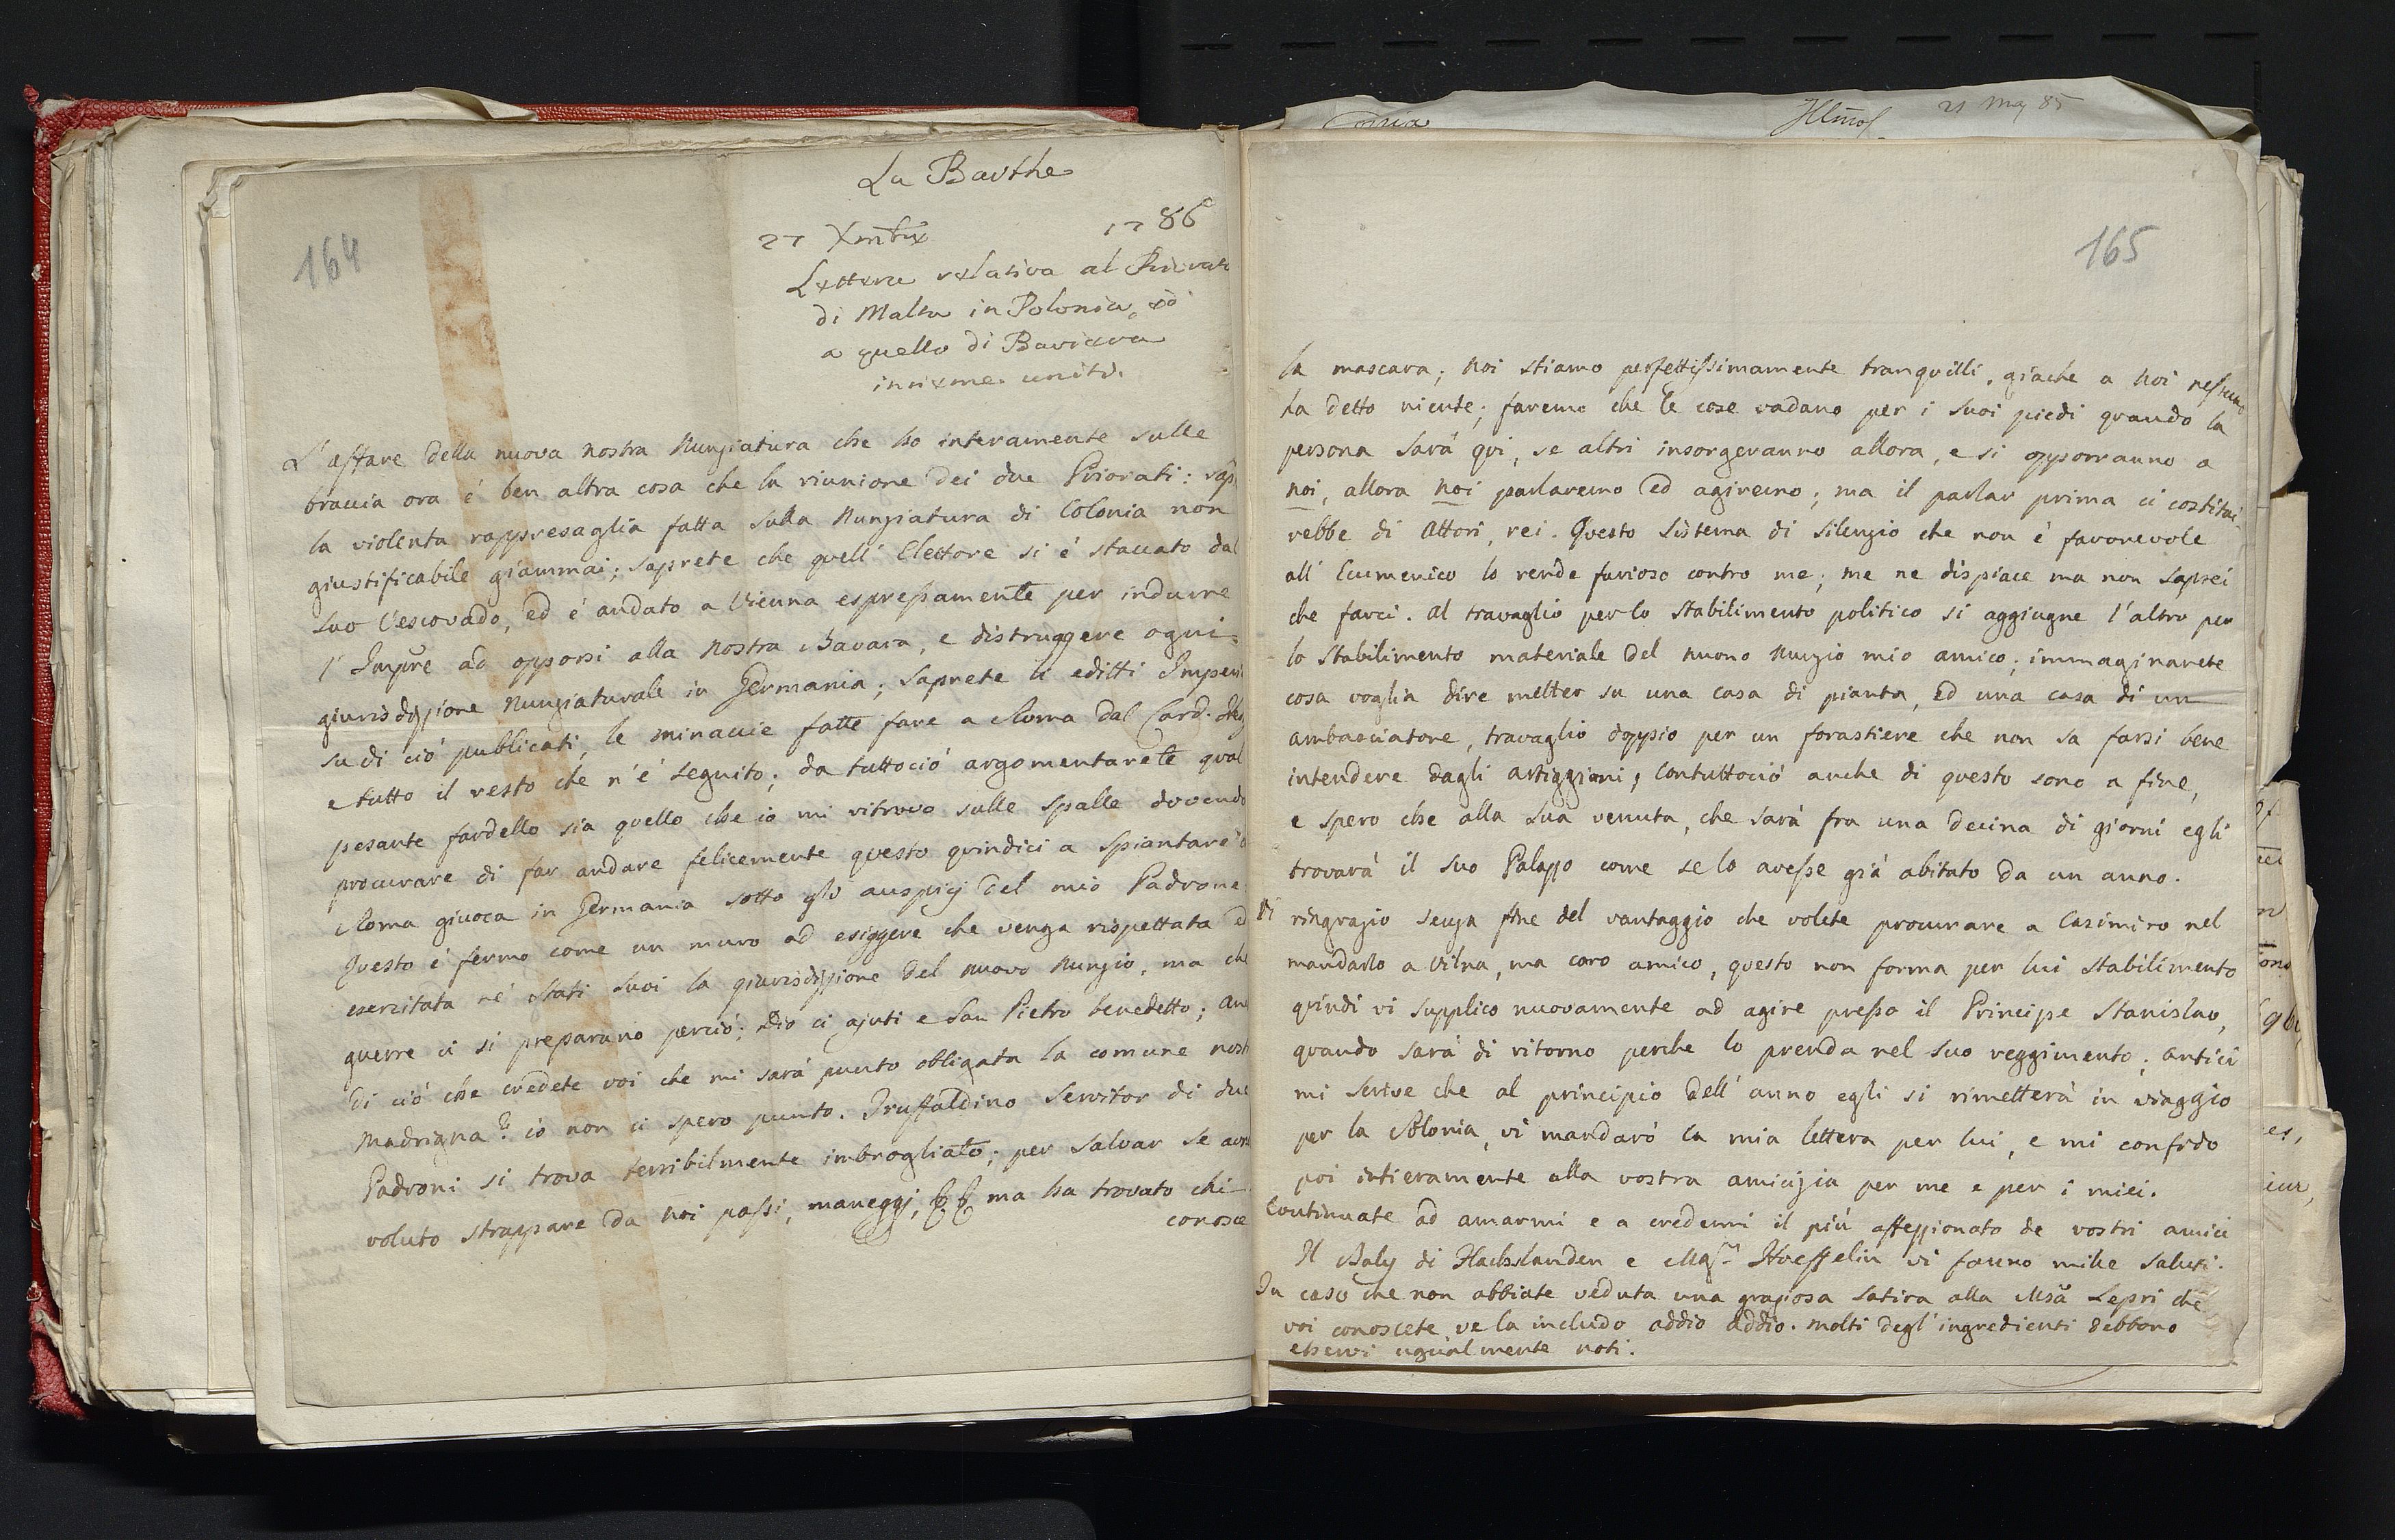 164
La Barthe
27 Xmbre 1786
Lettera relativa al Priorato
di Malta in Polonia, ed
a quello di Baviera
insieme uniti.
L'affare della nuova nostra Nunziatura che ho interamente sulle
braccia ora é ben altra cosa che la riunione dei due Priorati: sap
la violenta rappresaglia fatta sulla Nunziatura di Colonia non
giustificabile giammai; saprete che quell' Elettore si é staccato dal
suo Vescovado, ed é andato a Vienna espressamente per indurre
l' Impre ad opporsi alla nostra Bavara, e distruggere ogni
giurisdizzione Nunziaturale in Germania; saprete li editti Imperi
su di ció publicati, le minaccie fatte fare a Roma dal Card.
e tutto il resto che n'é seguito; da tuttoció argomentarete qual
pesante fardello sia quello che io mi ritrovo sulle spalle dovendo
procurare di far andare felicemente questo quindici a spiantare
Roma giuoca in Germania sotto gli auspicj del mio Padrone
Questo é fermo come un muro ad esiggere che venga rispettata ed
esercitata né stati suoi la giurisdizzione del nuovo Nunzio, ma che
guerre ci si preparano perció; Dio ci ajuti e San Pietro benedetto;
Di ció che credete voi che mi sará punto obligata la comune nostr
Madrigna? io non ci spero punto. Truffaldino Servitor di due
Padroni si trova terribilmente imbrogliato; per salvar se
voluto strappare da noi passi, maneggj, &c &c ma ha trovato chi
conosce
21 May 85
165
la mascara; noi stiamo perfettissimamente tranquilli, giache a noi nessuno
ha detto niente; faremo che le cose vadano per i suoi piedi quando la
persona sará qui, se altri insorgeranno allora, e si opporranno a
noi, allora noi parlaremo ed agiremo; ma il parlar prima ci costitui-
rebbe di Attori, rei. Questo sistema di silenzio che non é favorevole
all' Ecumenico lo rende furioso contro me; me ne dispiace ma non saprei
che farci. al travaglio per lo stabilimento politico si aggiugne l'altro per
lo stabilimento materiale del nuovo Nunzio mio amico; immaginarete
cosa voglia dire metter su una casa di pianta, ed una casa di un
ambasciatore, travaglio doppio per un forastiere che non sa farsi bene
intendere dagli artiggiani; contuttoció anche di questo sono a fine,
e spero che alla sua venuta, che sará fra una decina di giorni egli
trovará il suo Palazzo come se lo avesse giá abitato da un anno.
Vi ringrazio senza fine del vantaggio che volete procurare a Casimiro nel
mandarlo a Vilna, ma caro amico, questo non forma per lui stabilimento
quindi vi supplico nuovamente ad agire presso il Principe Stanislao,
quando sará di ritorno perche lo prenda nel suo reggimento; Antici
mi scrive che al principio dell' anno egli si rimetterá in viaggio
per la Polonia, vi mandaró la mia lettera per lui, e mi confido
poi intieramente alla vostra amicizia per me e per i miei.
Continuate ad amarmi e a credermi il piú affezzionato de vostri amici
Il Baly di Flachslanden e Msgr Haeffelin vi fanno mille saluti.
In caso che non abbiate veduta una graziosa satira alla Msa Lepri che
voi conoscete ve la includo addio addio. molti degl' ingredienti debbono
esservi ugualmente noti.